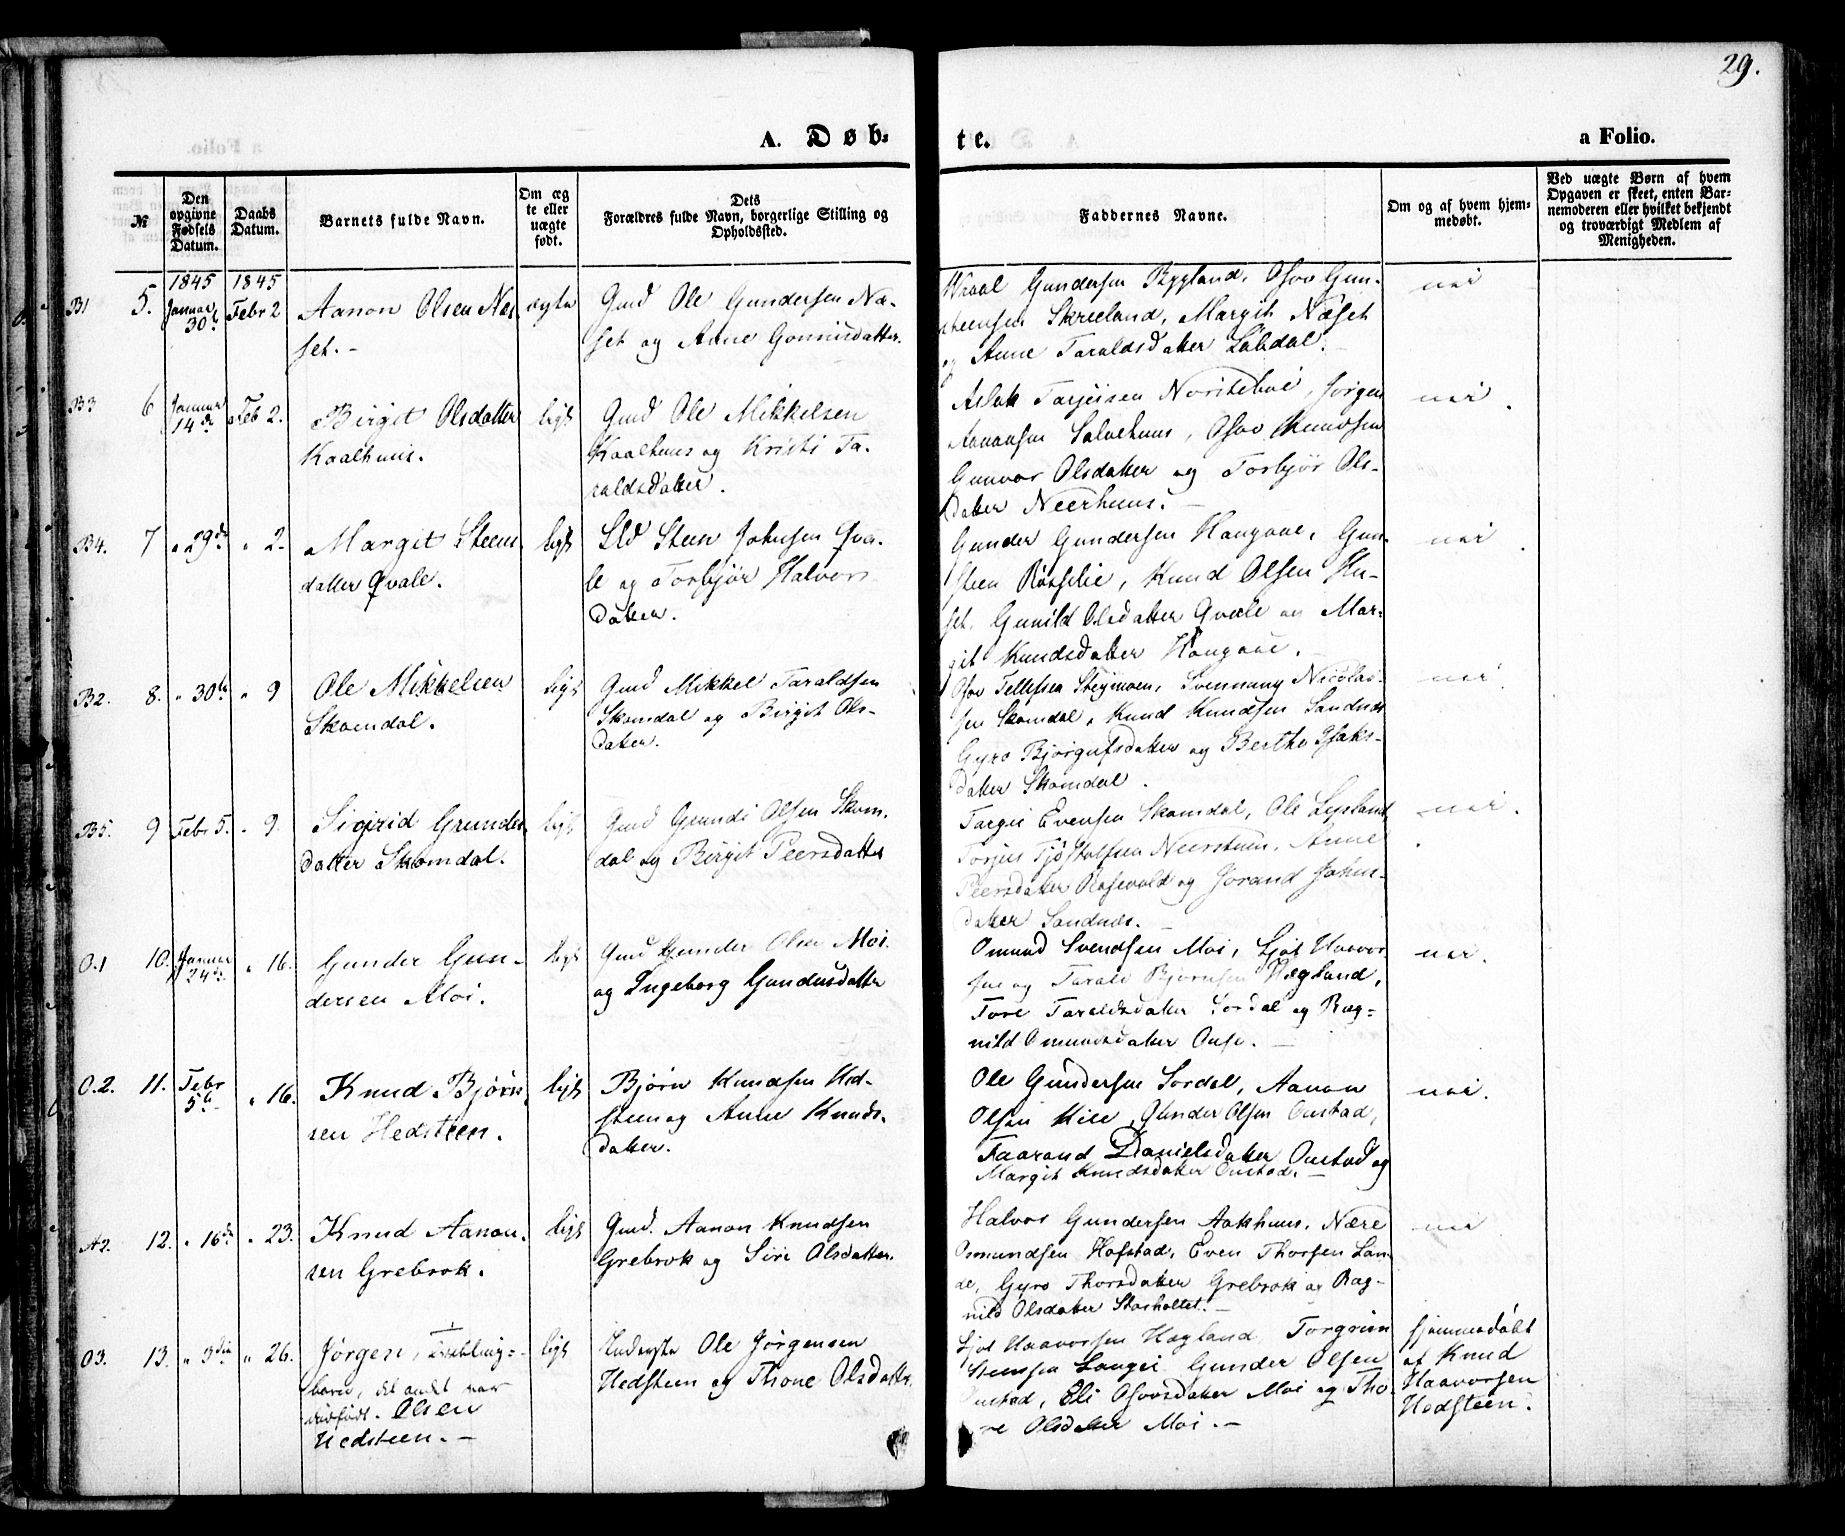 29.
A. Døb-
te.
a Folio.
№
Den opgivne Fødsels Datum.
Daabs Datum.
Barnets fulde Navn.
Om ægte eller uægte født.
Dets Forældres fulde Navn, borgerlige Stilling og Opholdssted.
Faddernes Navne.
Om og af hvem hjemmedøbt.
Ved uægte Børn af hvem Opgaven er skeet, enten Barnemoderen eller hvilket bekjendt og troværdigt Medlem af Menigheden.
1845 1845
B1 5. Januar 30 Febr 2 Aanon Olsen Næ-
set.
ægte
Gmd Ole Gundersen Næ-
set og Anne Gonnisdatter
Gundersen Bygland, Osov Gun-
steensen Skreeland, Margit Næset
og Anne Taraldsdatter
nei
B3 6 Januar 14de Feb 2. Birgit Olsdatter
Kaalhuus.
ligt
Gmd Ole Mikkelsen
Kaalhuus og Kristi Ta-
raldsdatter.
Aslak Tarjeisen Jørgen
Aanonsen Salvehuus, Osov Knudsen
Gunvor Olsdatter og Torbjør Ols-
datter Neerhuus.
nei
B4. 7 " 29de " 2. Margit Steens
datter Qvale.
ligt
Sld Steen Johnsen Qva-
le og Torbjør Halvors
datter.
Gunder Gundersen Haugaae, Gun-
steen Røsselie, Knud Olsen Hu-
set, Gunild Olsdatter Qvale og Mar-
git Knudsdatter Haugaae.
nei
B2. 8. " 30te " 9 Ole Mikkelsen
Skomdal.
ligt
Gmd Mikkel Taraldsen
Skomdal og Birgit Ols-
datter.
Osov Tellefsen Stigmoen, Svennung Nicolai-
sen Skomdal, Knud Knudsen Sandnæs
Gyro Bjørgufsdatter og Berthe Isaks-
datter Skomdal.
nei
B5. 9 Febr 5. " 9. Sigrid Grunder
datter Skomdal.
ligt
Gmd Olsen Skom-
dal og Birgit Peersdatter
Targie Evensen Skomdal, Ole Lysland
Torjus Tjøstolfsen Neerstuen, Anne
Peersdatter og Jorand Johns-
datter Sandnæs.
nei.
O.1 10. Januar 24de " 16. Gunder Gun-
dersen Moi.
ligt
Gmd Gunder Olsen Moi
og Ingeborg Gundersdatter
Omund Svendsen Moi, Ljøt Haavor
sen og Tarald Bjørnsen Hægland,
Tore Taraldsdatter Sordal og Rag-
nild Omundsdatter
nei.
O.2. 11. Febr 5te " 16. Knud Bjørn
sen Hedsteen.
ligt
Bjørn Knudsen Hed-
steen og Anne Knuds-
datter.
Ole Gundersen Sordal, Aanon
Olsen Kile, Gunder Olsen Onstad,
Taarand Danielsdatter Onstad og
Margit Knudsdatter Onstad.
nei.
A2. 12. " 16de " 23. Knud Aanon-
sen Grebrok.
ligt
Gmd. Aanon Knudsen
Grebrok og Siri Olsdatter.
Halvor Gundersen Aakhuus, Nære
Osmundsen Hofstad, Even Thorsen Lan-
de, Gyro Thorsdatter Grebrok og Rag-
nild Olsdatter Storholtet.
nei
O3. 13. " 3die " 26. Jørgen, Tvilling-
barn, det andet var
dødfødt. Olsen
Hedsteen.
ligt
Inderste Ole Jørgensen
Hedsteen og Thone Olsdatter
Ljøt Haavorsen Hægland, Torgrim
Steensen Langei Gunder Olsen
Onstad, Eli Osovsdatter Moi og Tho-
re Olsdatter Moi.
hjemmedøbt
af Knud
Haavorsen
Hedsteen.